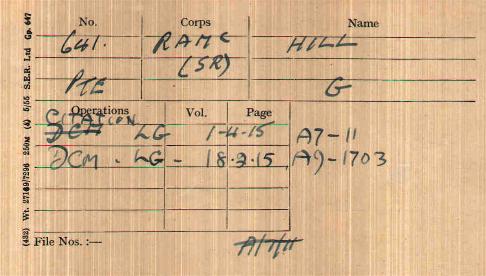 No. Corps Name
641. RAMC HILL
(SR)
PTE G
Operations Vol. Page
CITATION
DCM LG 1-4-15 A7-11
DCM - LG - 18.3.15 A9-1703
File Nos. :— A/1/11
(432) Wt. 27169/7296 250M (4) 5/55 S.E.R. Ltd Gp. 647